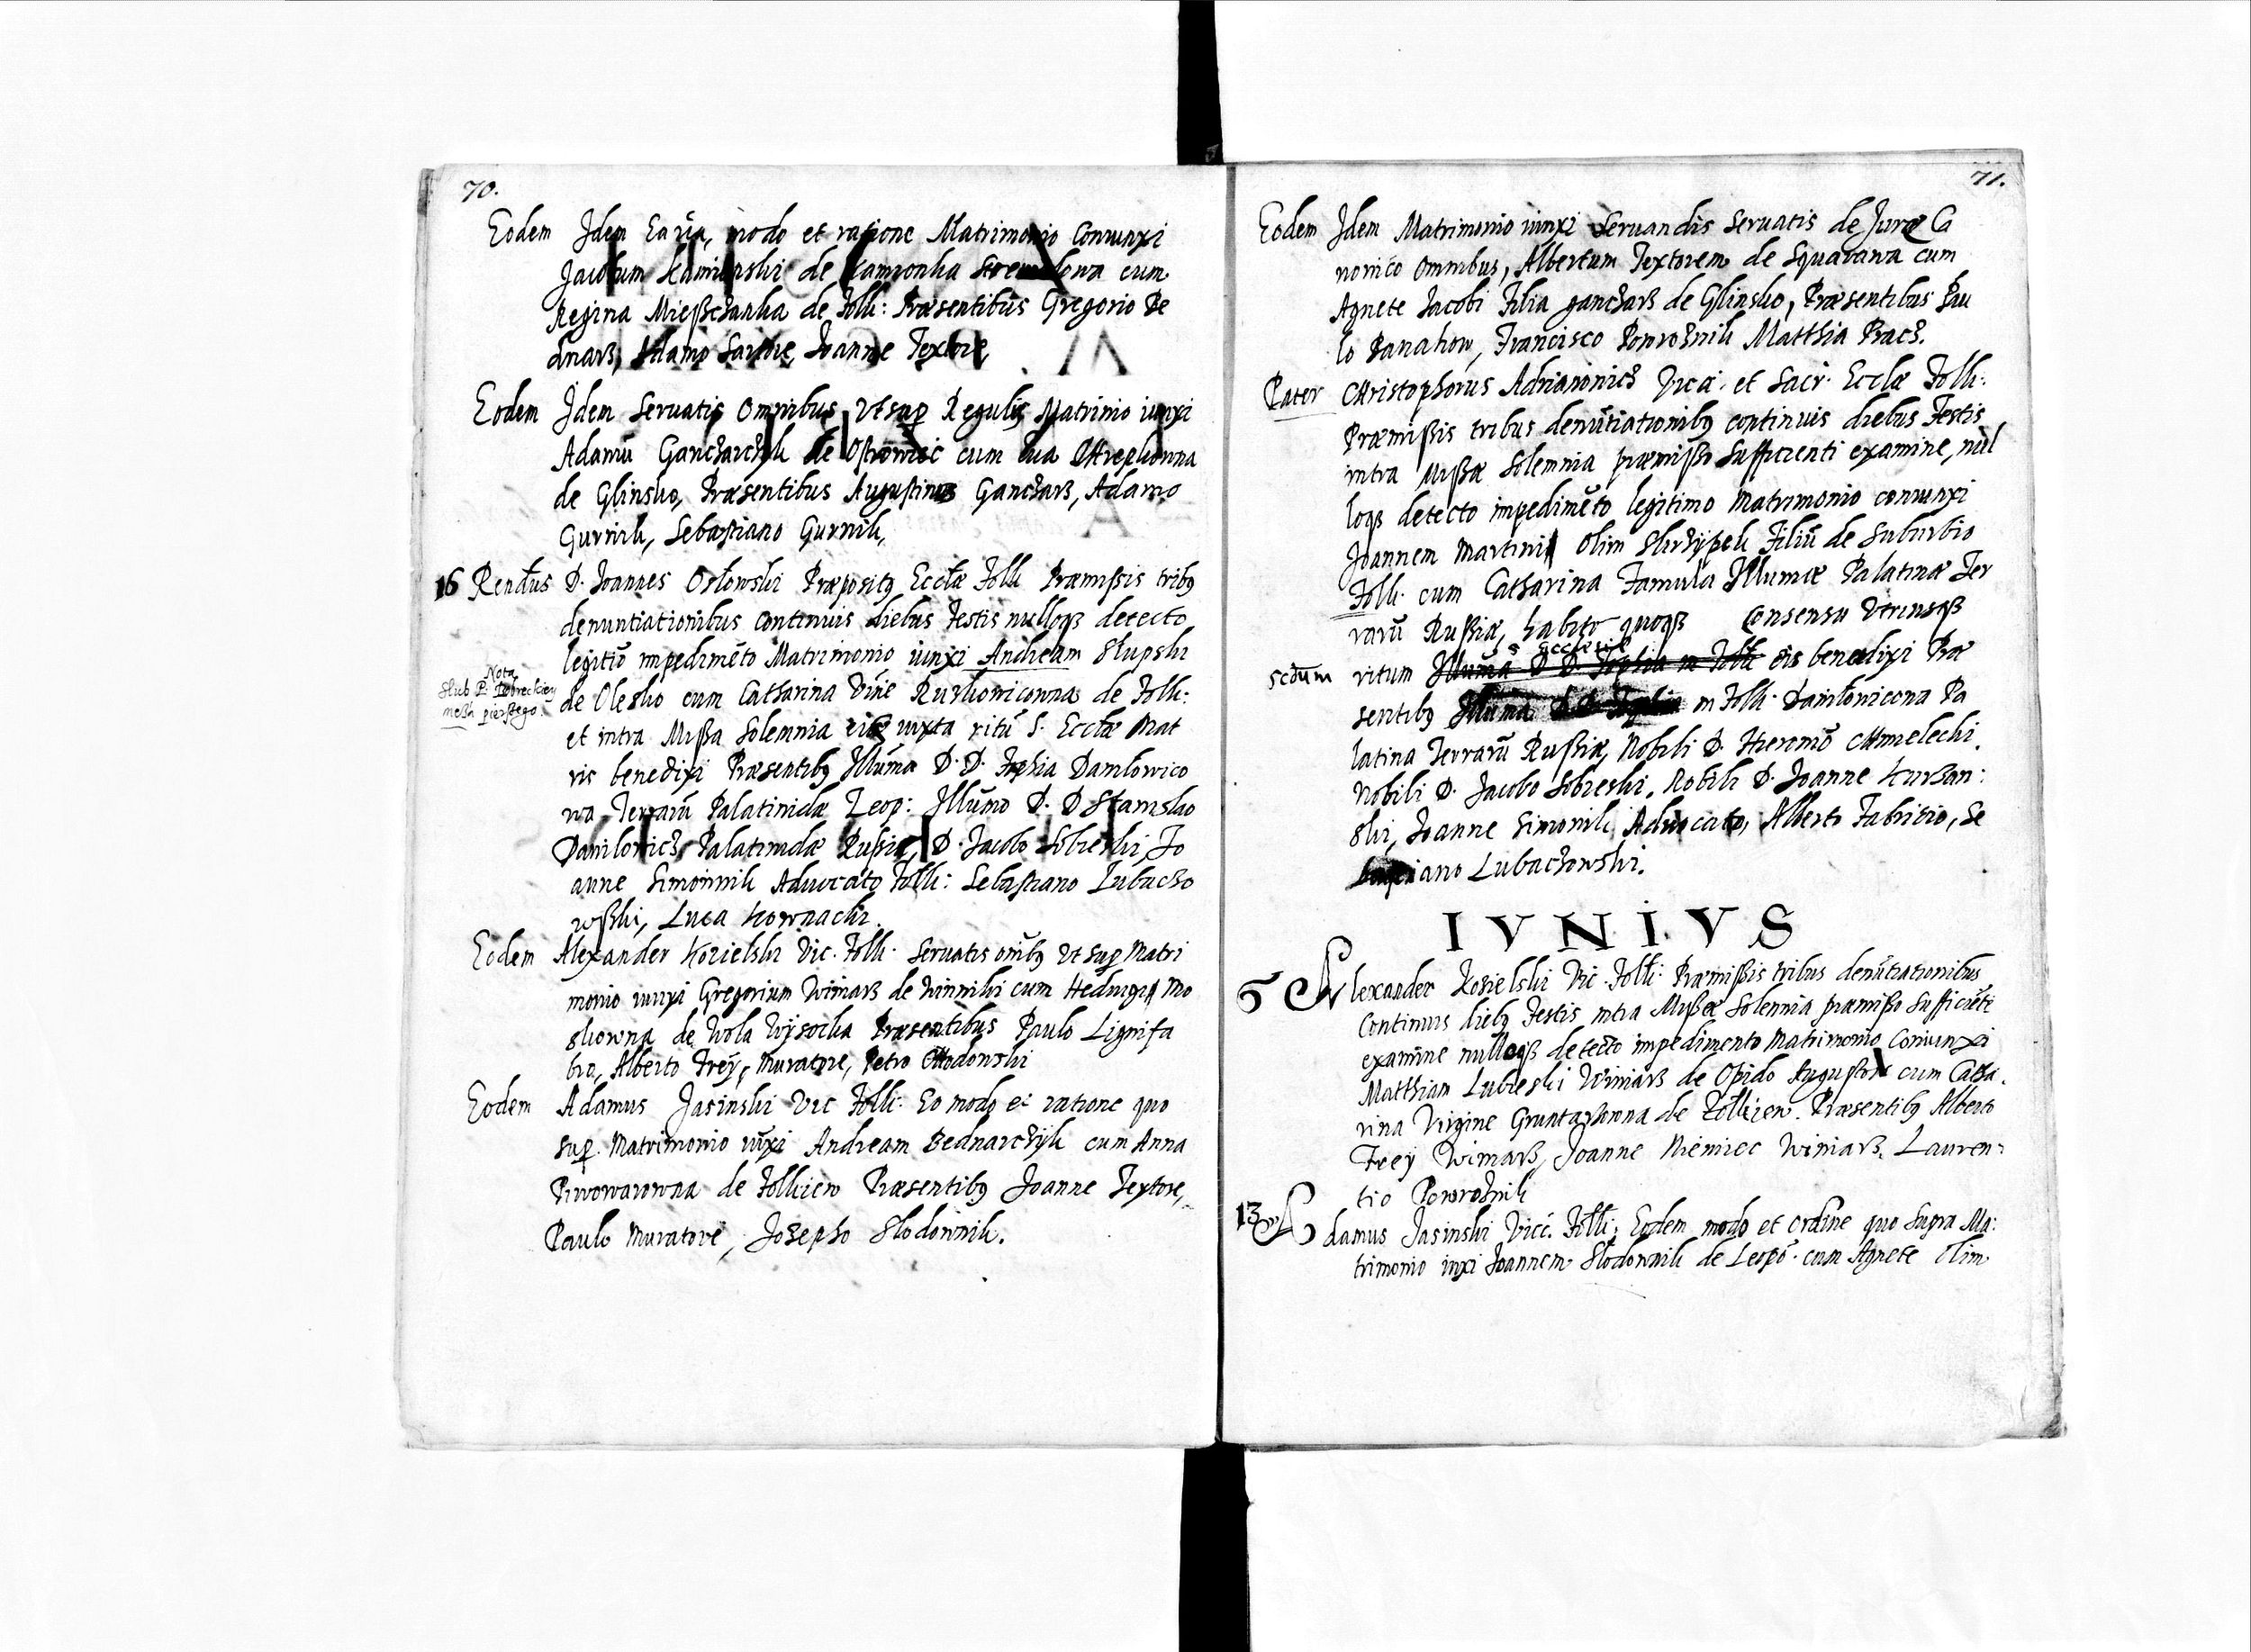 70.
Eodem Idem Ea vĩa, modo et ratione Matrimonio Coniunxi
Jacobum Kaminski de Kamionka cum
Regina Mießczanka de Zolk: Præsentibus Gregorio Be
dnarß, Adamo Sartore, Joanne Textore,
Eodem Idem Seruatis Omnibus Vt sup Regulis Matrimo iunxi
Adamũ Ganczarczyk de Ostrowiec cum Eua
de Glinsko, Præsentibus Augustino Ganczarß, Adamo
Gurnik, Sebastiano Gurnik,
16 Rendus D. Joannes Præpositq Ecclæ Zolk Præmissis tribq
denuntiationibus Continuis diebus Festis nulloqß detecto
legitiõ impedimẽto Matrimonio iunxi Andream Slupski
Nota
Slub P:
meßk pierßego.
de Olesko cum Catharina Vine Kußkowiconna de Zolk:
et intra Mißa Solemnia eis iuxta ritũ S. Ecclæ Mat
ris benedixi Præsentibq Illũma D. D. Zophia Danilowico
wa Terrarũ Palatinidæ Leop: Illũmo D. D Stanislao
Danilowicz Palatinidæ Rußiæ, D. Jacobo Sobieski, Jo
anne Simonnik Aduocato Zolk: Sebastiano Lubaczo
wßki, Luca Kownacki.
Eodem Alexander Kozielski Vic. Zolk. Seruatis omibq Vt Sup Matri
monio iunxi Gregorium Winiarß de Winniki cum Heduigi Mo
skowna de Wola Wysocka Præsentibus Paulo Lignifa
bro, Alberto Frey, Muratore, Petro
Eodem Adamus Jasinski Vic Zolk. Eo modo et ratione quo
sup. Matrimonio iũxi Andream Bednarczyk cum Anna
Piwowarowna de Zolkiew Præsentibq Joanne Textore,
Paulo Muratore, Josepho Slodownik.
71.
Eodem Idem Matrimonio iunxi Seruandis Seruatis de Juræ Ca
nonico Omnibus, Albertum Textorem de Squarawa cum
Agnete Jacobi Filia ganczarß de Glinsko, Præsentibus Pau
lo Panakow, Francisco Powroznik Matthia Pracz.
Pater Christophorus Adrianowicz Vica. et Sacr. Ecclæ Zolk:
Præmißis tribus denũtiationibq continuis diebus Festis
intra Mißæ Solemnia præmißo Sufficienti examine, nul
loqß detecto impedimẽto legitimo Matrimonio coniunxi
Joannem Martini Olim Skrzypek Filiũ de Suburbio
Zolk. cum Catharina Famula Illumæ Palatinæ Ter
rarũ Rußiæ, habito quoqß Consensu Vtriusqß
scdum ritum S Ecclesiæ Illũma D D. Zophia in Zolk eis benedixi Præ
sentibq Illũma D.D. Zophia in Zolk Danilowicona Pa
latina Terrarũ Rußiæ, Nobili D. Hieronimõ Chmelecki.
Nobili D. Jacobo Sobieski, Nobili D. Joanne Kurßan:
ski, Joanne Simonik Aduocato, Alberto Fabritio, Se
bastiano Lubaczowski.
IVNIVS
6 Alexander Kozielski Vic. Zolk: Præmißis tribus denũtiationibus
Continuis diebq Festis intra Mißæ Solemnia præmißo Sufficiẽti
examine nulloqß detecto impedimento Matrimonio Coniunxi
Matthiam Lubieski Winiarß de Opido Augustow cum Catha
rina Virgine Gruntarßowna de Zolkiew. Præsentibq Alberto
Frey Winiarß, Joanne Niemiec Winiarß, Lauren=
tio Powroznik
13 Adamus Jasinski Vicc. Zolk: Eodem modo et Ordine quo Supra Ma:
trimonio iũxi Joannem Slodownik de Leopo. cum Agnete Olim